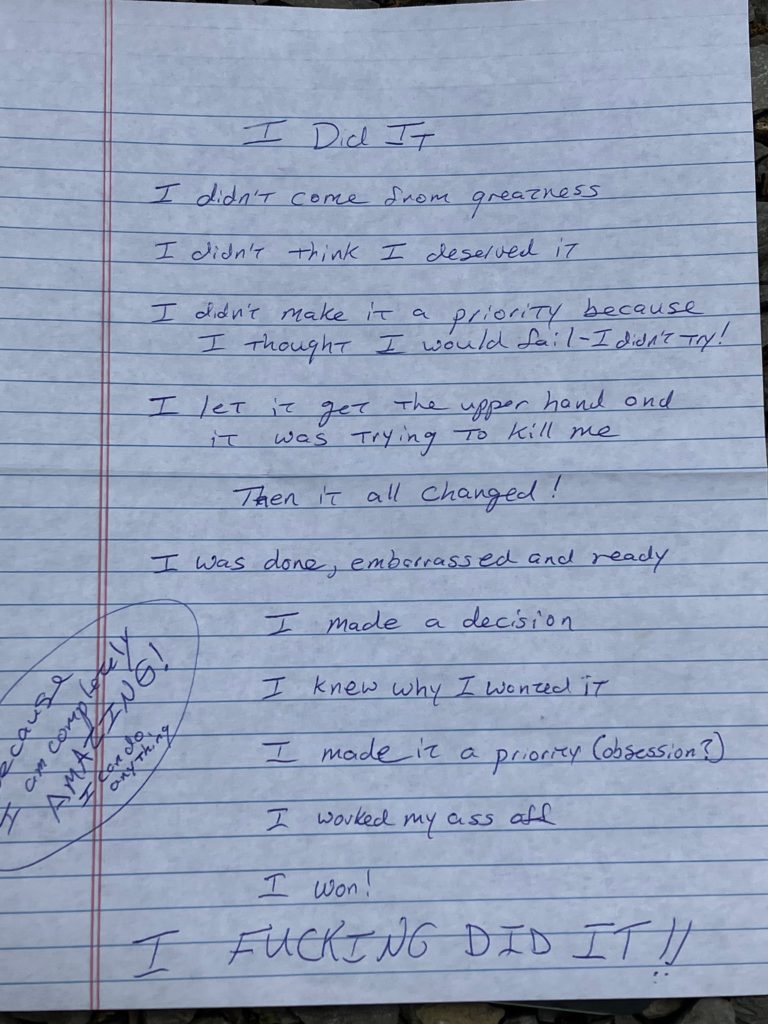 I Did IT
I didn't come from greatness
I didn't think I deserved it
I didn't make it a priority because
I thought I would fail - I didn't try!
I let it get the upper hand and
it was trying to kill me
Then it all changed!
I was done, embarrassed and ready
I made a decision
I knew why I wanted it
I made it a priority (obsession?)
I worked my ass off
I won!
I FUCKING DID IT!!
ecause
I am completely
AMAZING!
I can do
anything